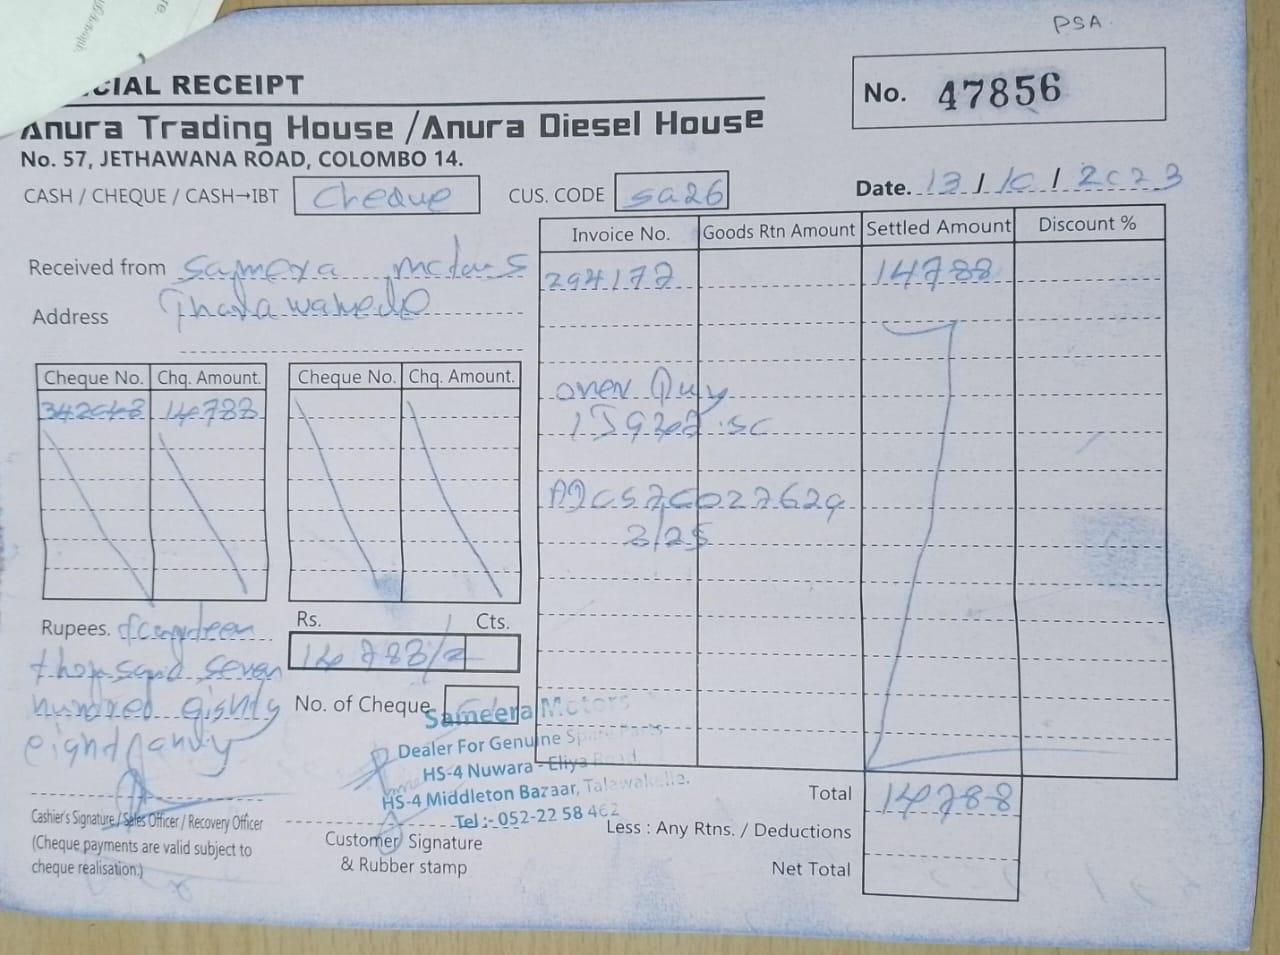 PSA
CIAL RECEIPT
No. 47856
Anura Trading House / Anura Diesel House
No. 57, JETHAWANA ROAD, COLOMBO 14.
CASH / CHEQUE / CASH→IBT Cheque CUS. CODE sa26 Date. 13 / 10 / 2023
Invoice No. Goods Rtn Amount Settled Amount Discount %
Received from Sameera motors
294172 14788
Address
Cheque No. Chq. Amount. Cheque No. Chq. Amount.
14788
over
3/25
Rupees. fourteen
thousand seven
hundred eighty
eight
Rs. Cts.
14788/
No. of Cheque
Sameera Motors
Dealer For Genuine Spare Parts
HS-4 Nuwara - Eliya Road,
HS-4 Middleton Bazaar, Talawakelle.
Tel :- 052-22 58 462
Total 14788
Less : Any Rtns. / Deductions
Net Total
Cashier's Signature / Sales Officer / Recovery Officer
(Cheque payments are valid subject to
cheque realisation.)
Customer Signature
& Rubber stamp